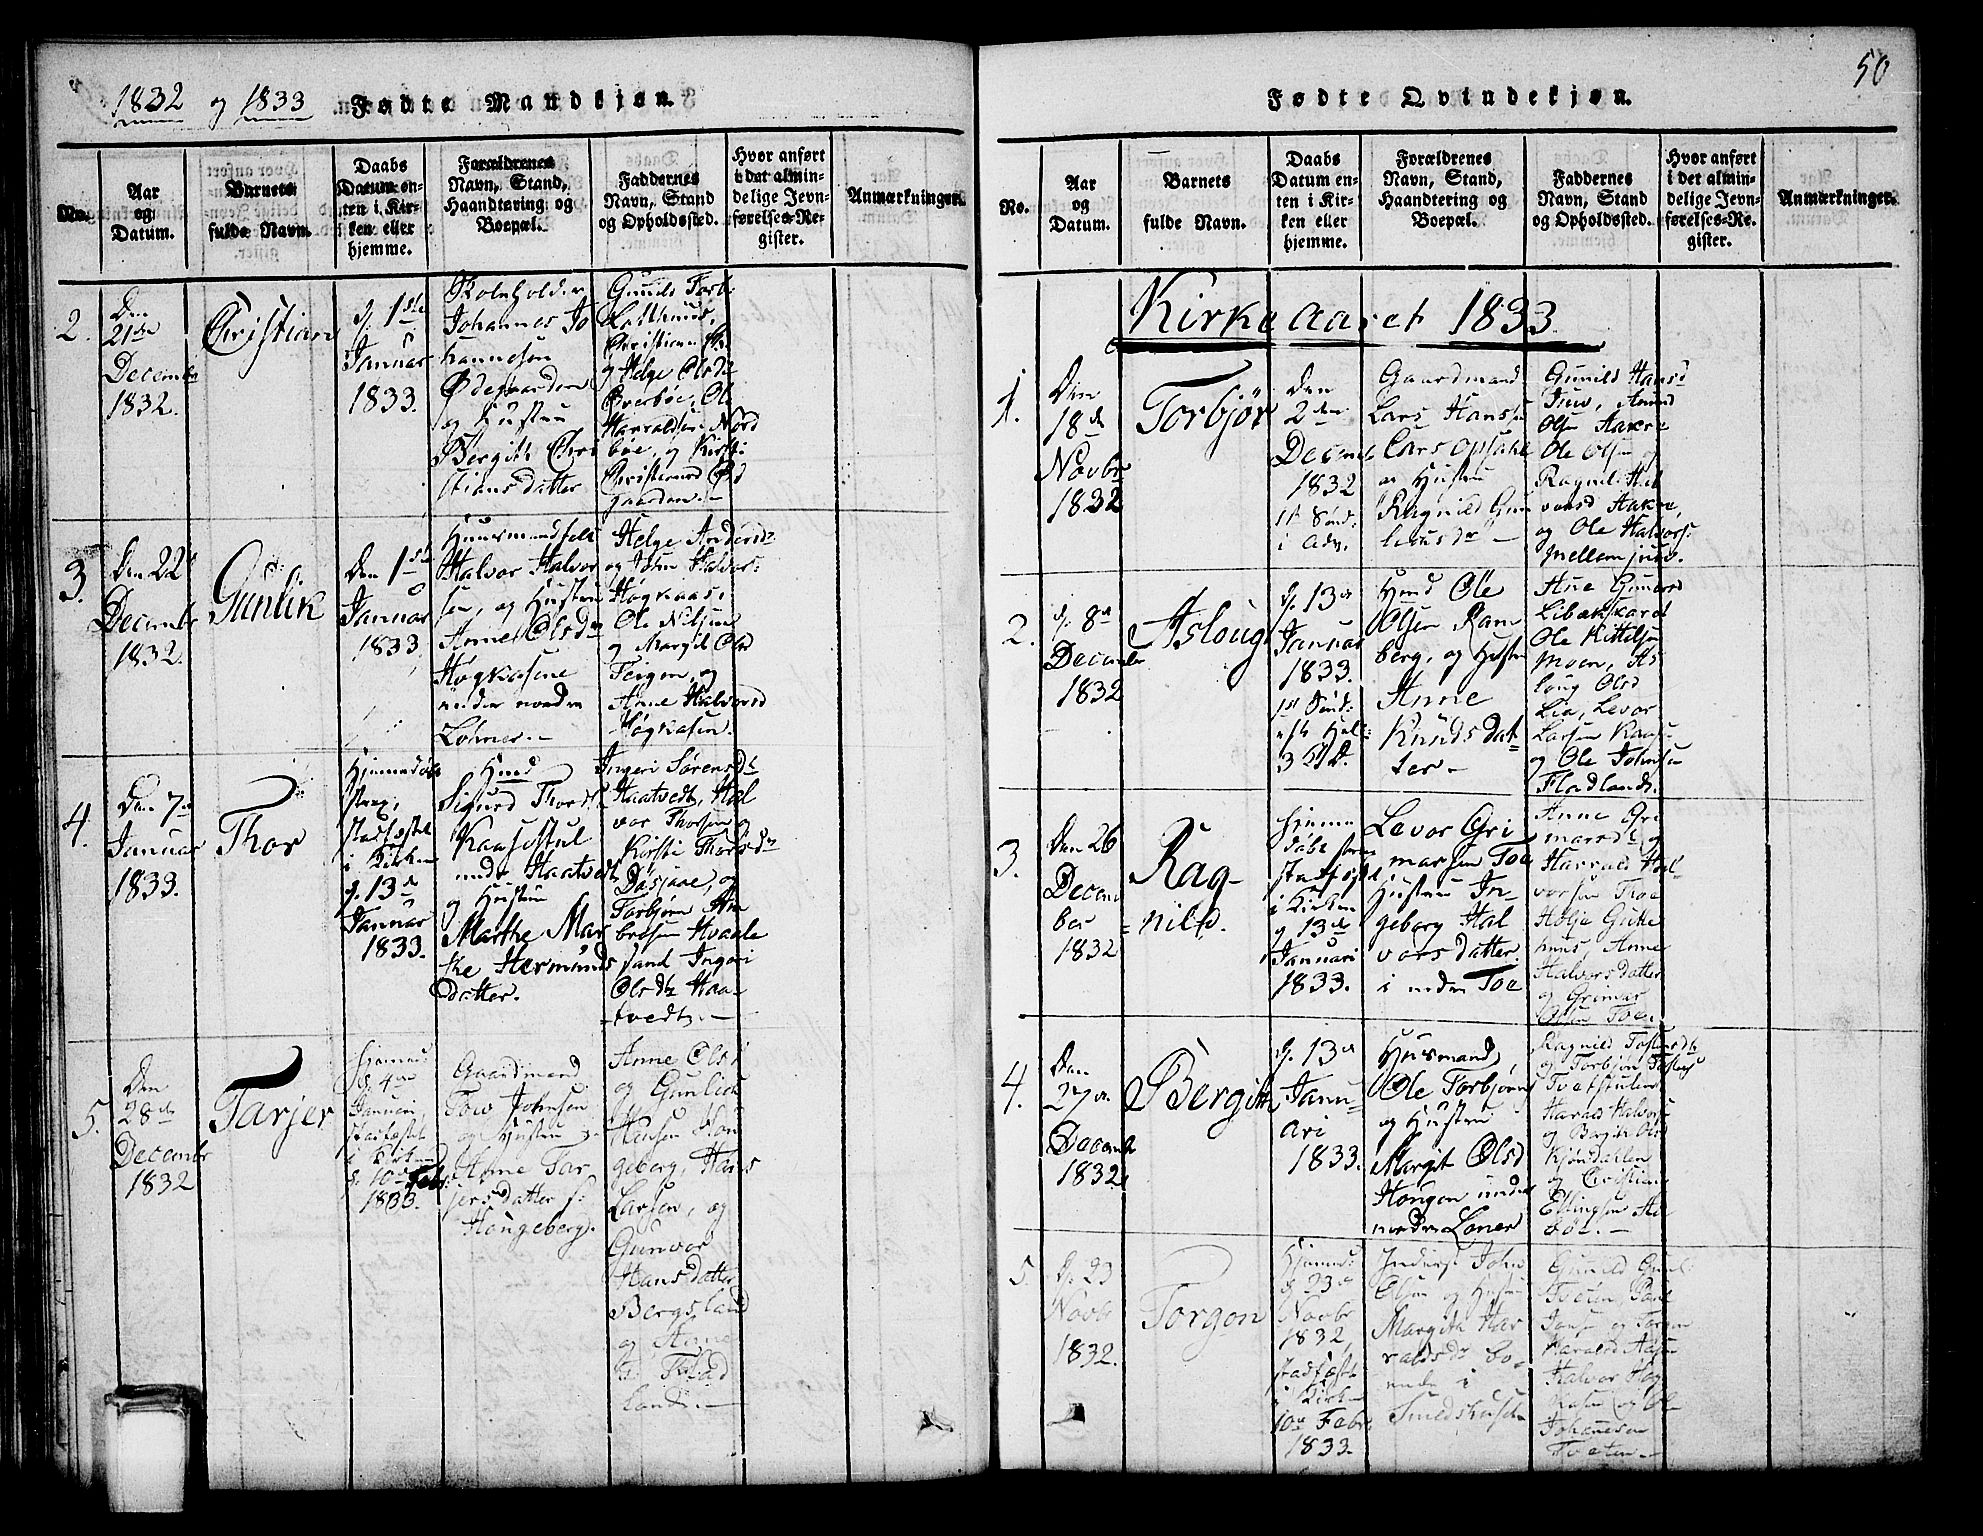 50
1832 og 1833 Fødte Mandkjøn.
No.
Aar
og
Datum.
Barnets
fulde Navn.
Daabs
Datum en-
ten i Kir-
ken eller
hjemme.
Forældrenes
Navn, Stand,
Haandtæring og
Boepæl.
Faddernes
Navn, Stand
og Opholdssted.
Hvor anført
i det almin-
delige Jevn-
førelses-Re-
gister.
Anmærkninger.
2.
Den
21de
Decembr
1832.
Christian
d. 1ste
Januar
1833.
Johannes Jo
hannesen
Ødegaarden
og Hustru
Bergith Chri
stiansdatter
Gunild Torb:
Christian
og Helge Olsdr
Overbøe, Ole
Haraldsen Nord
bøe, og Kirsti
gaarden.-
3.
Den 22de
Decembr
1832.
Gunlik
Den 1ste
Januar
1833
Huusmandfolk
Halvor Halvor
sen, og Hustru
Anne Olsdr
Høgkasene
under nordre
Løhner.-
Helge Andersdr
og John Halvor:
Høgkaas:
Ole Nilsen
og Margit Olsd
Teigen, og
Anne Halvorsd
Høgkasen.
4.
Den 7de
Januar
1833.
Thor
Hjemmedøbt
strax,
stadfæstet
i Kirken
d. 13de
Januar
1833.
Hmd
Sigurd Thords:
under Haatvedt
og Hustru
Marthe Mar
the Hermunds
datter.
Ingeri Sørensdr
Haatvedt, Hal
vor Thorsen og
Kirsti Thorsdr
Torbjørn Am
brosen Hvaale
sand Ingeri
Olsdr Haa-
tvedt.-
5.
Den
28de
Decembr
1832
Tarjer
Hjemme
d. 4de
Januari,
stadfæstet
i Kirken
d. 10de Febr:
1833.
Gaardmand
Tow Johnsen
og Hustru
Anne Tar
jersdatter
Hougeberg.
Anne Olsd
og Gunlick
Hansen Hou
geberg, Hans
Larsen, og
Gunvor
Hansdatter
Bergsland
og Anne
Flad
land.-
Fødte Qvindekjøn.
No.
Aar
og
Datum.
Barnets
fulde Navn.
Daabs
Datum en-
ten i Kir-
ken eller
hjemme.
Forældrenes
Navn, Stand,
Haandtering og
Boepæl.
Faddernes
Navn, Stand
og Opholdssted.
Hvor anført
i det almin-
delige Jevn-
førelses-Re-
gister.
Anmærkninger.
Kirkeaaret 1833
1.
Den
18de
Novbr
1832
Torbjør
Den
2den
Decembr
1832
1st Sønd:
i Adv.
Gaardmand
Lars Hansen
Opsahl
og Hustru
Ragnild Gun
Gunild Hansd
Juw, Amund
Olsen Haakne
Ole Olsen og
Ragnil Hal
vorsd Haakne,
og Ole Halvors:
mellem juw.
2.
d. 8de
Decembr
1832
Asloug
d. 13de
Januar
1833.
1st Sønd:
3 Kl.
Hmd Ole
Olsen Ram
berg, og Hustru
Anne
Knudsdat-
ter-
Ane Gunarsd
Ole Kittelsen
Moen, As
loug Olsd
Lia, Levor
Larsen
og Ole Johnsen
Flodland.
3.
Den 26
Decem
ber
1832
Rag-
nild.
Hjemme
døbt strax
stadfæstet
i Kirken
d. 13de
Januari
1833.
Levor Gri
marsen Toe
Hustru In-
geborg Hal
vorsdatter.
i nedre Toe
Anne Gri
marsdr og
Harald Hal-
vorsen Thoe
Anne
Halvorsdatter
og Grimar
Olsen Toe.
4.
Den
27de
Decembr
1832.
Bergith
d. 13de
Janu-
ari
1833.
Husmand,
Ole Torbjørns
og Hustru
Margit Olsd
Hougen under
nordre Løner
Ragnild Tostensdr
og Torbjøn Tostens
Tvetstulen
Harald Halvors
og Bergith Olsd
og Christian
Ellingsen
bøe.-
5.
D. 23
Novbr
1832.
Torgon
Hjemme:
d. 23de
Novbr
1832,
stadfæstet
i Kirken
10de Febr.
1833.
Inderst John
Olsen og Hustru
Margith Har
raldsdr bo-
ende i
Smedshuset
Gunild Gunl:
Tveten, Paul
Jonsen og Torgon
Haralsd
Halvor Hog
kasen og Ole
Johannesen
Tveten.-